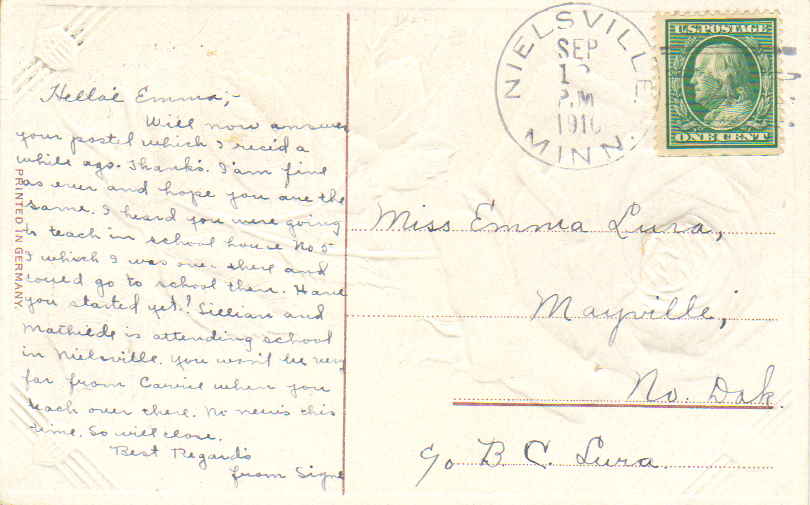 Hello Emma;-
Will now answer
your postel which I rec'd a
while ago. Thanks. I am fine
as ever and hope you are the
same. I heard you were going
to teach in school house No 5
I which I was over there and
could go to school then. Have
you started yet? Lillian and
Mathilde is attending school
in Nielsville. You won't be very
far from Carrie when you
teach over there. No news this
time. So will close.
Best Regards
from Signe
PRINTED IN GERMANY.
NIELSVILLE
SEP
P.M
1910
MINN.
U.S. POSTAGE
ONE CENT
Miss Emma Lura,
Mayville,
No. Dak.
c/o B. C. Lura.